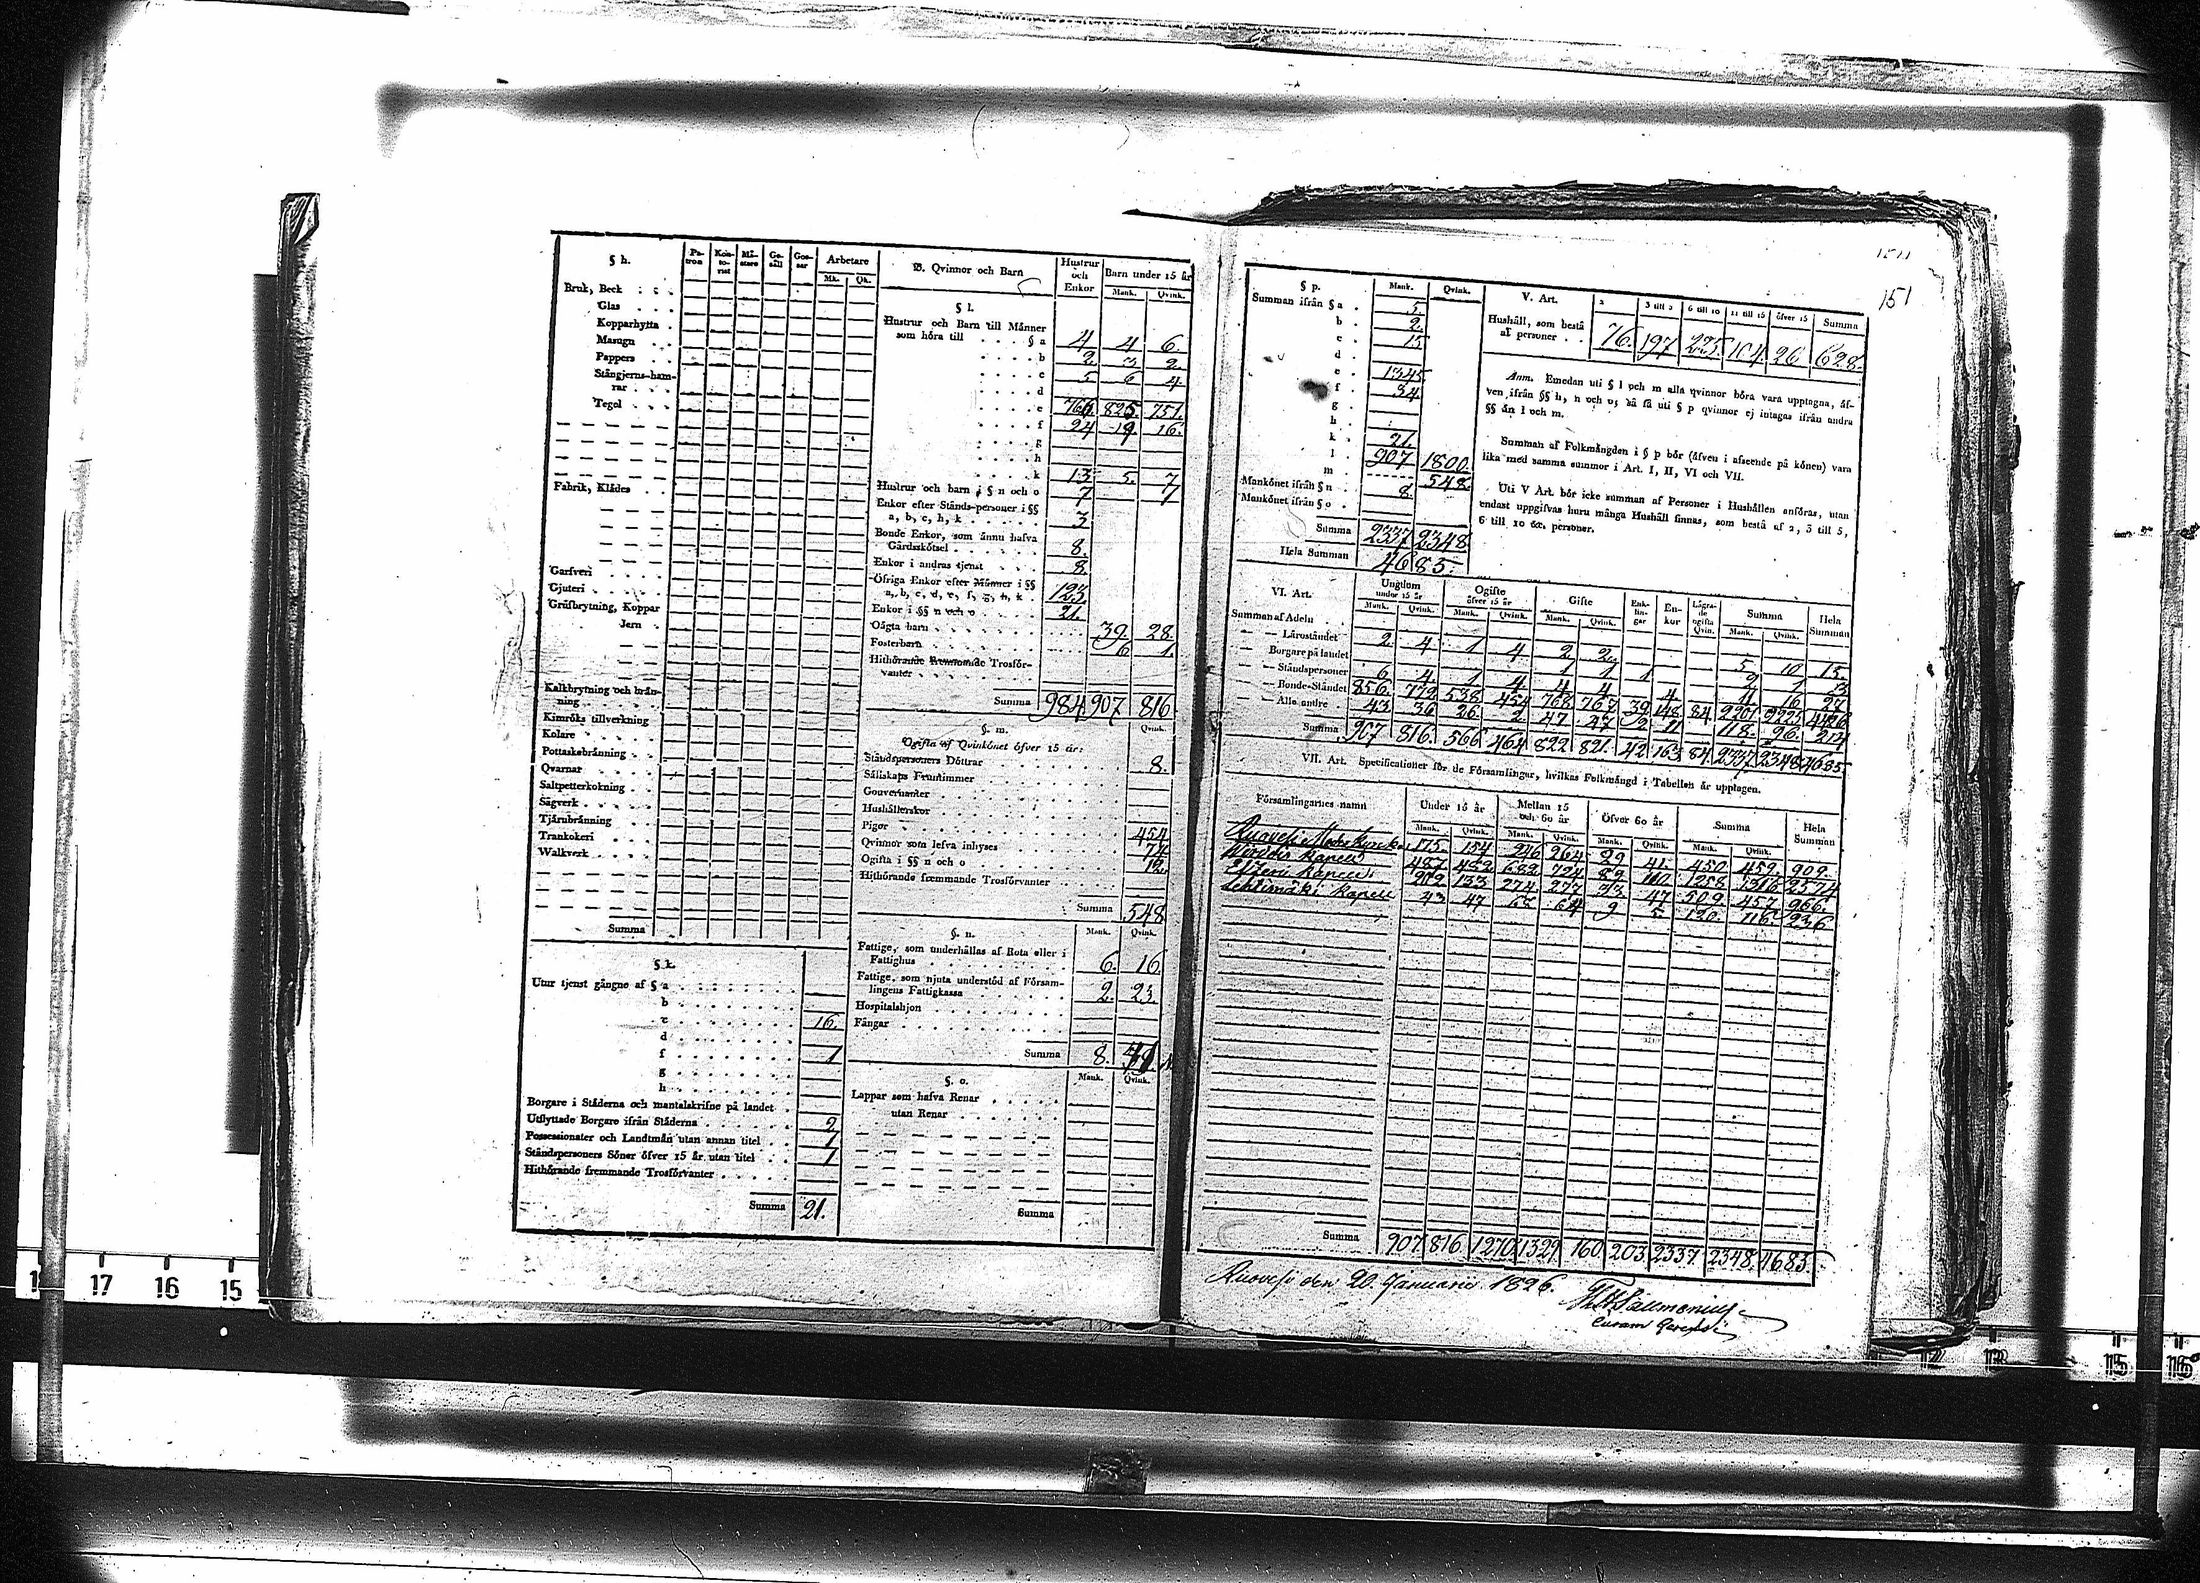 § h.
Patron
Kontorist
Mästare
Gesäll
Gossar
Arbetare
Mk. Qk.
Bruk, Beck
Glas
Kopparhytta
Masugn
Pappers
Stångjerns-hamrar
Tegel
Fabrik, Klädes
Garfveri
Gjuteri
Grufbrytning, Koppar
Jern
Kalkbrytning och bränning
Kimröks tillverkning
Kolare
Pottaskebränning
Qvarnar
Saltpetterkokning
Sågverk
Tjärubränning
Trankokeri
Walkverk
Summa
§ k.
Utur tjenst gångne af § a
b
c 16.
d
f 1
g
h
Borgare i Städerna och mantalskrifne på landet
Utflyttade Borgare ifrån Städerna 2
Possessionater och Landtmän utan annan titel 1
Ståndspersoners Söner öfver 15 år utan titel 1
Hithörande fremmande Trosförvanter
Summa 21.
B. Qvinnor och Barn
Hustrur och Enkor
Barn under 15 år
Mank. Qvink.
§ l.
Hustrur och Barn till Männer
som höra till § a 4 4 6.
b 2 3 2.
c 5 6 4
d
e 766 825. 751.
f 24 19 16.
g
h
k 13 5. 7
Hustrur och barn i § n och o 7 7
Enkor efter Stånds-personer i §§
a, b, c, h, k 3
Bonde Enkor, som ännu hafva
Gårdsskötsel 8.
Enkor i andras tjenst 8
Öfriga Enkor efter Männer i §§
a, b, c, d, e, f, g, h, k 123
Enkor i §§ n och o 21.
Oägta barn 39. 28.
Fosterbarn 6 1.
Hithörande fremmande Trosförvanter
Summa 984 907 816
§. m.
Qvink.
Ogifta af Qvinkönet öfver 15 år:
Ståndspersoners Döttrar 8.
Sällskaps Fruntimmer
Gouvernanter
Hushållerskor
Pigor 454
Qvinnor som lefva inhyses 74
Ogifta i §§ n och o 12.
Hithörande fremmande Trosförvanter
Summa 548
§. n.
Mank. Qvink.
Fattige, som underhållas af Rota eller i
Fattighus 6. 16
Fattige, som njuta understöd af Församlingens
Fattigkassa 2. 23
Hospitalshjon
Fångar
Summa 8.
§. o.
Mank. Qvink.
Lappar som hafva Renar
utan Renar
Summa
151
§ p.
Mank. Qvink.
Summan ifrån § a 5.
b 2.
c 15
d
e 1345
f 34
g
h
k 21.
l 907 1800.
m 548.
Mankönet ifrån § n 8.
Mankönet ifrån § o
Summa 2337 2348
Hela Summan 4685.
V. Art.
2
3 till 5
6 till 10
11 till 15
öfver 15
Summa
Hushåll, som bestå
af personer 76. 197 225. 104. 26 628.
Anm. Emedan uti § l och m alla qvinnor böra vara upptagna, äfven
ifrån §§ h, n och o; så få uti § p qvinnor ej intagas ifrån andra
§§ än l och m.
Summan af Folkmängden i § p bör (äfven i afseende på könen) vara
lika med samma summor i Art. I, II, VI och VII.
Uti V Art. bör icke summan af Personer i Hushållen anföras, utan
endast uppgifvas huru många Hushåll finnas, som bestå af 2, 3 till 5,
6 till 10 &c. personer.
VI. Art.
Ungdom under 15 år
Ogifte öfver 15 år
Gifte
Enklingar
Enkor
Lägrade ogifta Qvin.
Summa
Hela Summan
Mank. Qvink. Mank. Qvink. Mank. Qvink. Mank. Qvink.
Summan af Adeln
— Läroståndet 2. 4 1 4 2 2. 5 10 15.
— Borgare på landet 1 1 1 2 1 3
— Ståndspersoner 6 4. 1 4 4 4 4 11 16 27
— Bonde-Ståndet 856. 772 538 454 768 767 39 148 84 2201 2225 4426
— Alle andre 43 36 26. 2 47 47 2 11 118. 96. 214
Summa 907 816. 566 464 822 821. 42 163 84 2337 2348 4685
VII. Art. Specificationer för de Församlingar, hvilkas Folkmängd i Tabellen är upptagen.
Församlingarnes namn
Under 15 år
Mellan 15 och 60 år
Öfver 60 år
Summa
Hela Summan
Mank. Qvink. Mank. Qvink. Mank. Qvink. Mank. Qvink.
Ruovesi Moderkyrka 175. 154 246 264 29 41 450 459 909.
Kapell 487 482 682 724 89 110 1258 1316 2574
Kapell 202 133 274 277 33 47 509. 457 966.
Kapell 43 47 68 64 9 5 120. 116. 236
Summa 907 816 1270 1329 160 203 2337 2348 4685.
Ruovesi den 20. Januarii 1826.